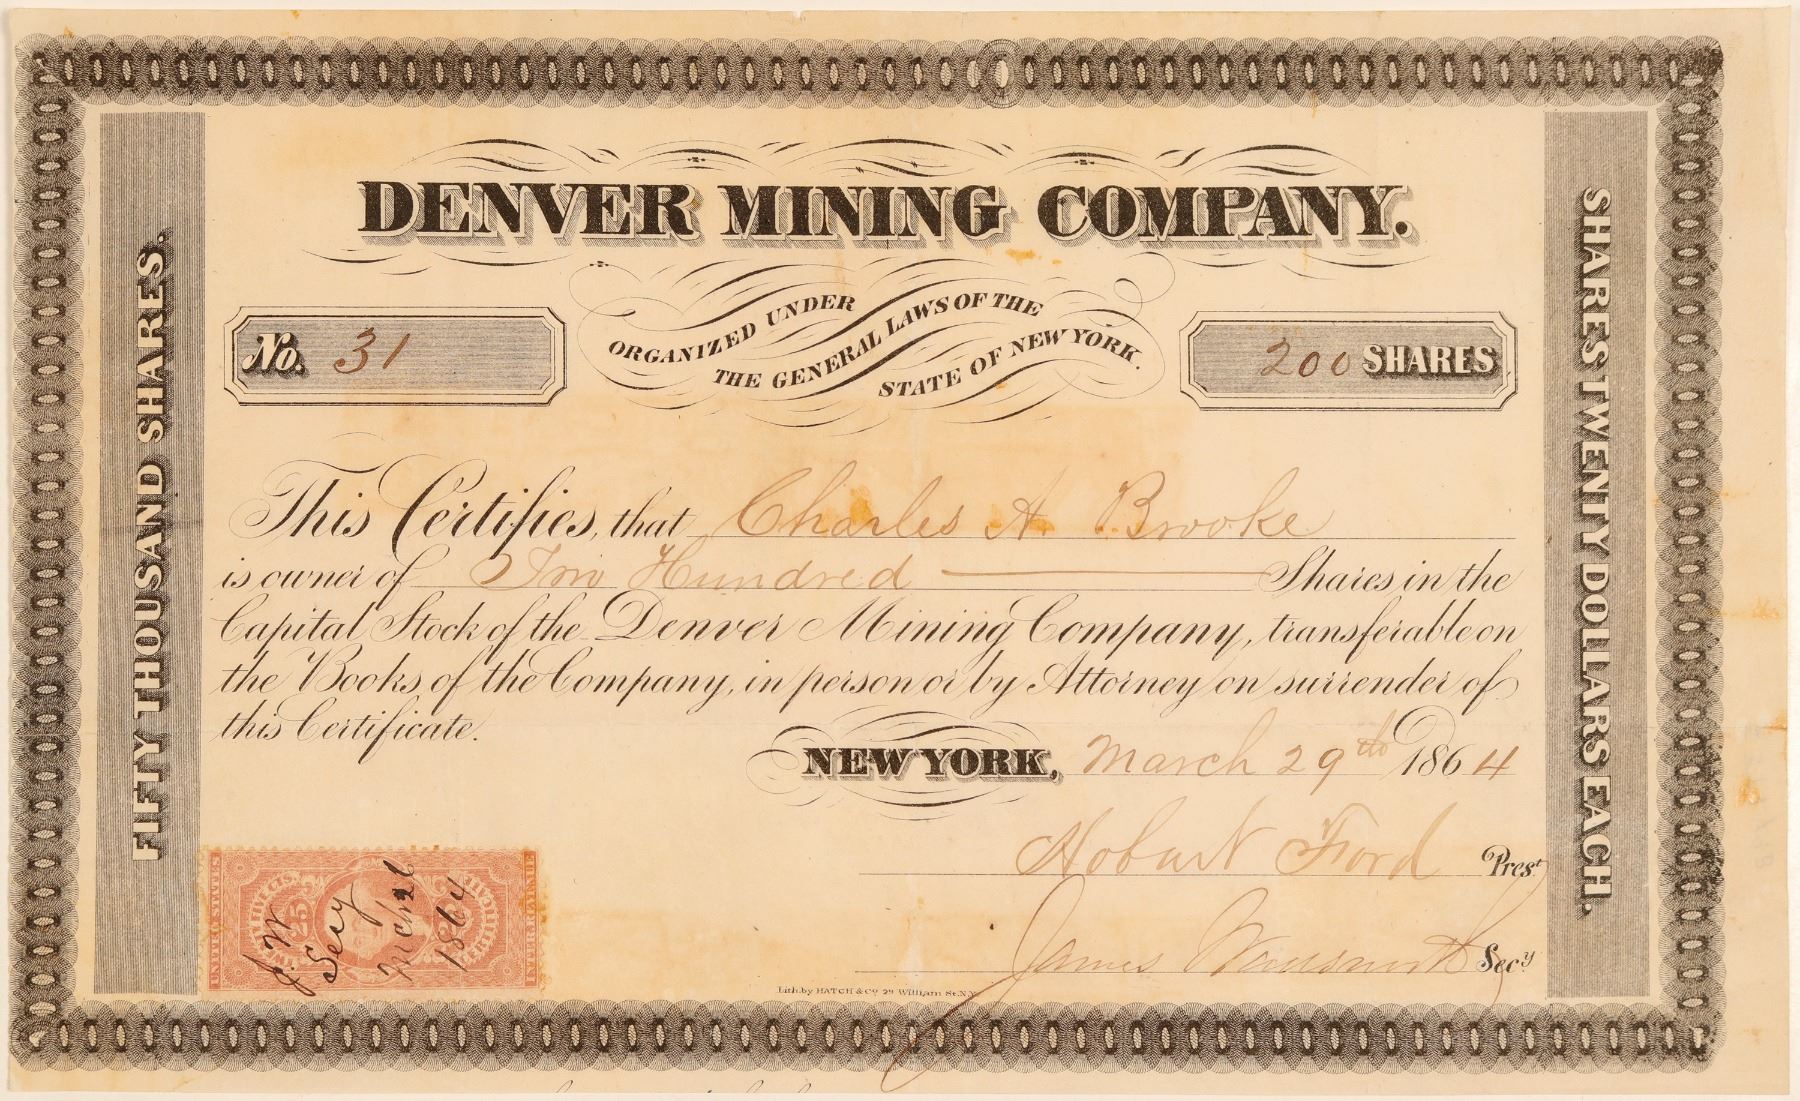 DENVER MINING COMPANY.
ORGANIZED UNDER
THE GENERAL LAWS OF THE
STATE OF NEW YORK.
No. 31
200 SHARES
FIFTY THOUSAND SHARES.
SHARES TWENTY DOLLARS EACH.
This Certifies, that Charles A Brooke
is owner of Two Hundred Shares in the
Capital Stock of the Denver Mining Company, transferable on
the Books of the Company, in person or by Attorney on surrender of
this Certificate.
NEW YORK, March 29th 1864
Hobart Ford Prest
James Secy
UNITED STATES
25 25
INTER. REVENUE
J. W
Secy
Mch 26
1864
Lith. by HATCH & Co 29 William St. N.Y.